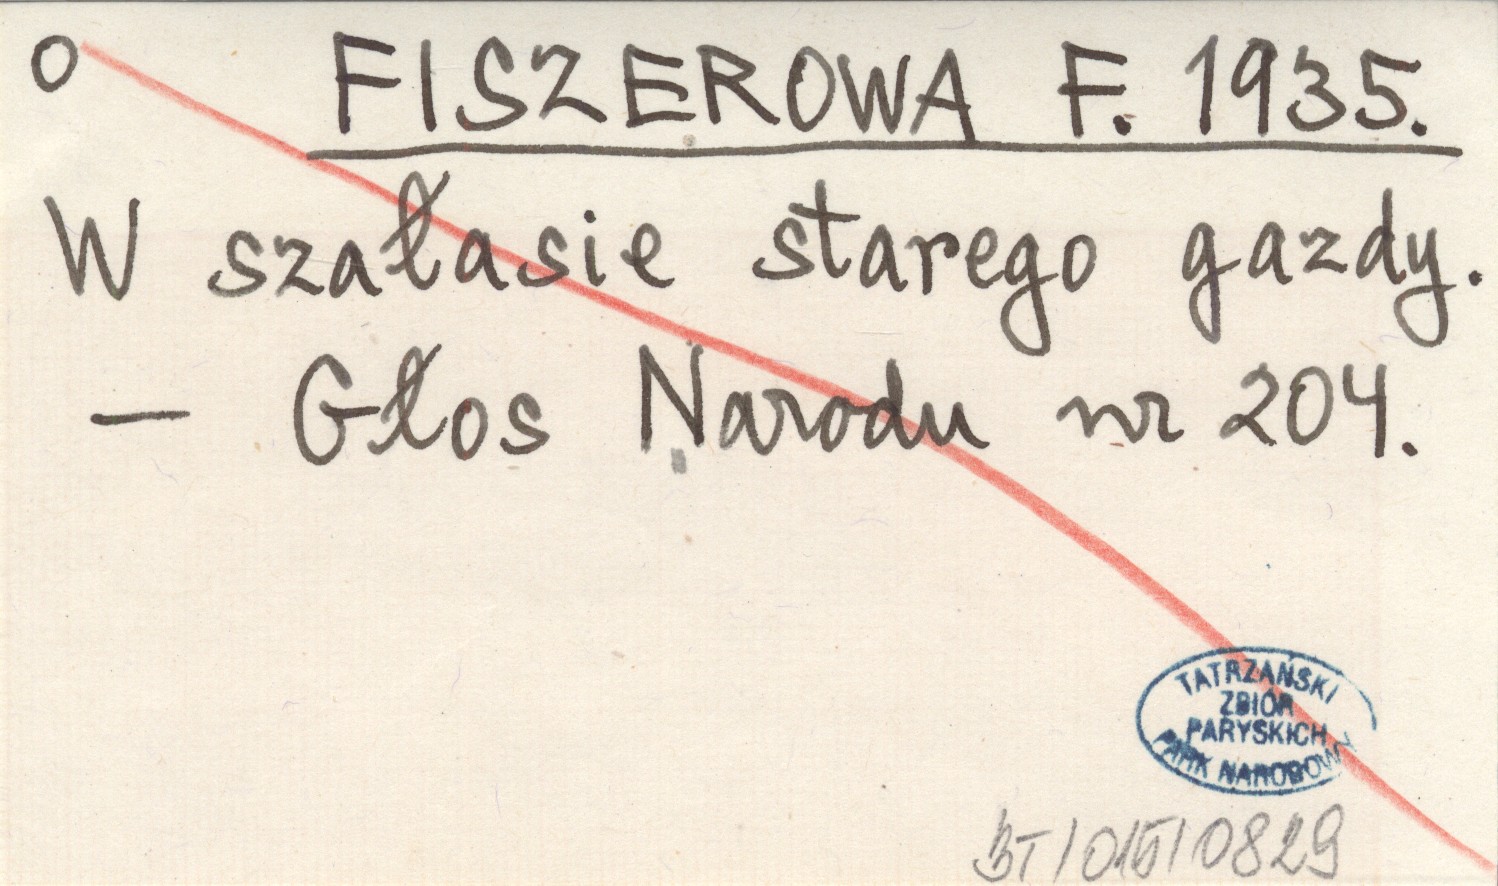 o FISZEROWA F. 1935.
W szałasie starego gazdy.
— Głos Narodu nr 204.
TATRZAŃSKI
ZBIÓR
PARYSKICH
PARK NARODOWY
BT/015/0829